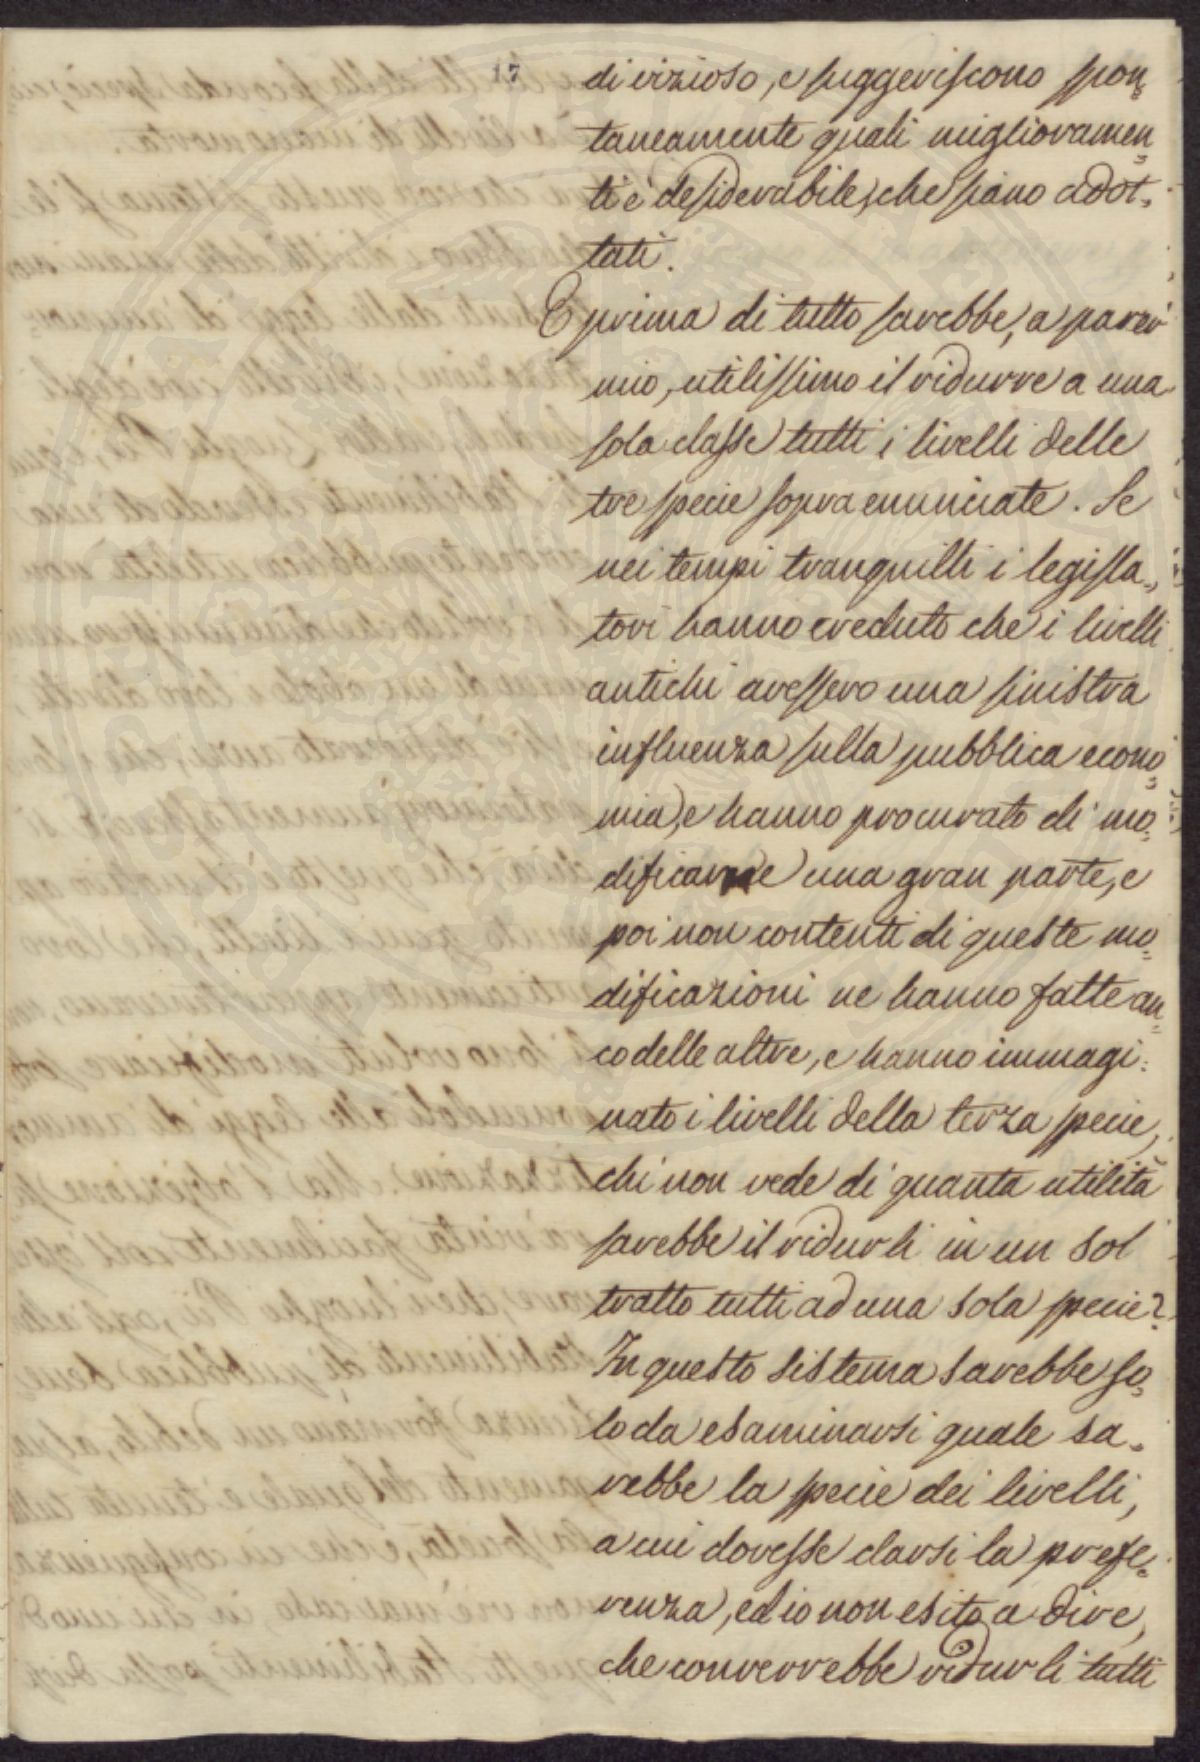 17
di vizioso, e suggeriscono spon„
taneamente quali miglioramen„
ti è desiderabile, che siano adot„
tati.
E prima di tutto sarebbe, a parer
mio, utilissimo il ridurre a una
sola classe tutti i livelli delle
tre specie sopra enunciate. Se
nei tempi tranquilli i legisla„
tori hanno creduto che i livelli
antichi avessero una sinistra
influenza sulla pubblica econo„
mia, e hanno procurato di mo„
dificarne una gran parte, e
poi non contenti di queste mo„
dificazioni ne hanno fatte an„
co delle altre, e hanno immagi„
nato i livelli della terza specie,
chi non vede di quanta utilità
sarebbe il ridurli in un sol
tratto tutti ad una sola specie?
In questo sistema sarebbe so„
lo da esaminarsi quale sa„
rebbe la specie dei livelli,
a cui dovesse darsi la prefe„
renza, ed io non esito a dire,
che converrebbe ridurli tutti